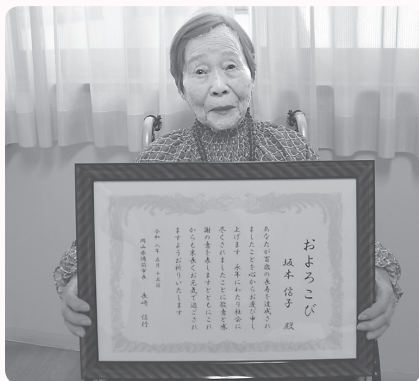 およろこび
坂本 信子 殿
あなたが百歳の長寿を達成され
ましたことを心からお慶び申し
上げます 永年にわたり社会に
尽くされましたことに敬意と感
謝の意を表しますとともにこれ
からも末長くお元気で過ごされ
ますようお祈りいたします
令和 三年 五月 十五日
岡山県備前市長 長崎 信行